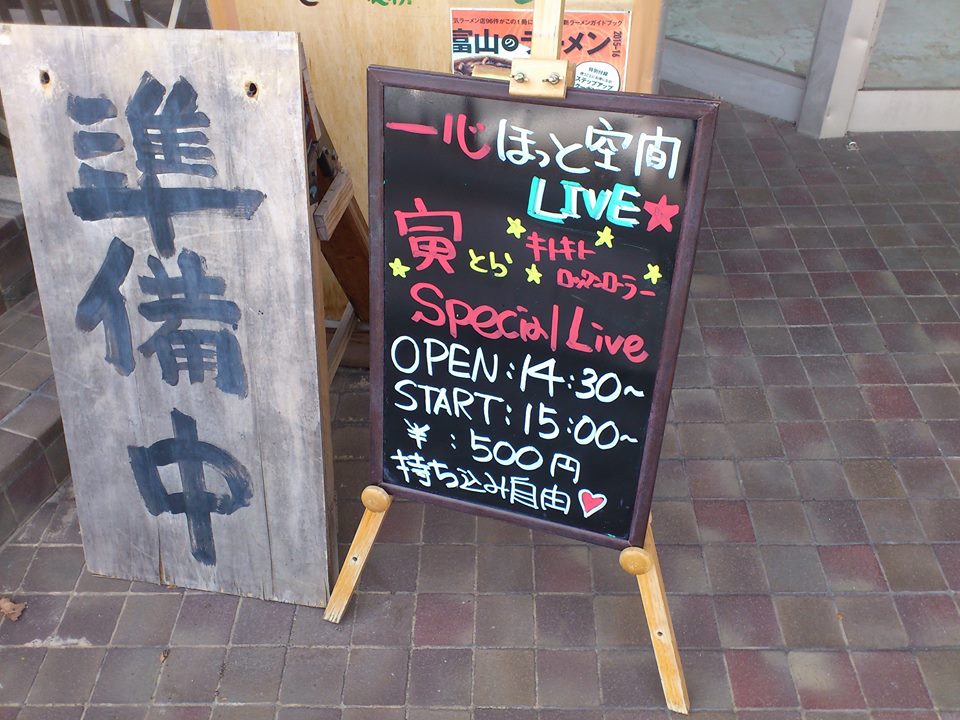 準備中
気ラーメン店96件がこの1冊に
新ラーメンガイドブック
富山のラーメン
2015-16
特別付録
ステップアップ
一心ほっと空間
LIVE
寅とら キトキト
ロックンローラー
Special Live
OPEN:14:30~
START:15:00~
¥:500円
持ち込み自由